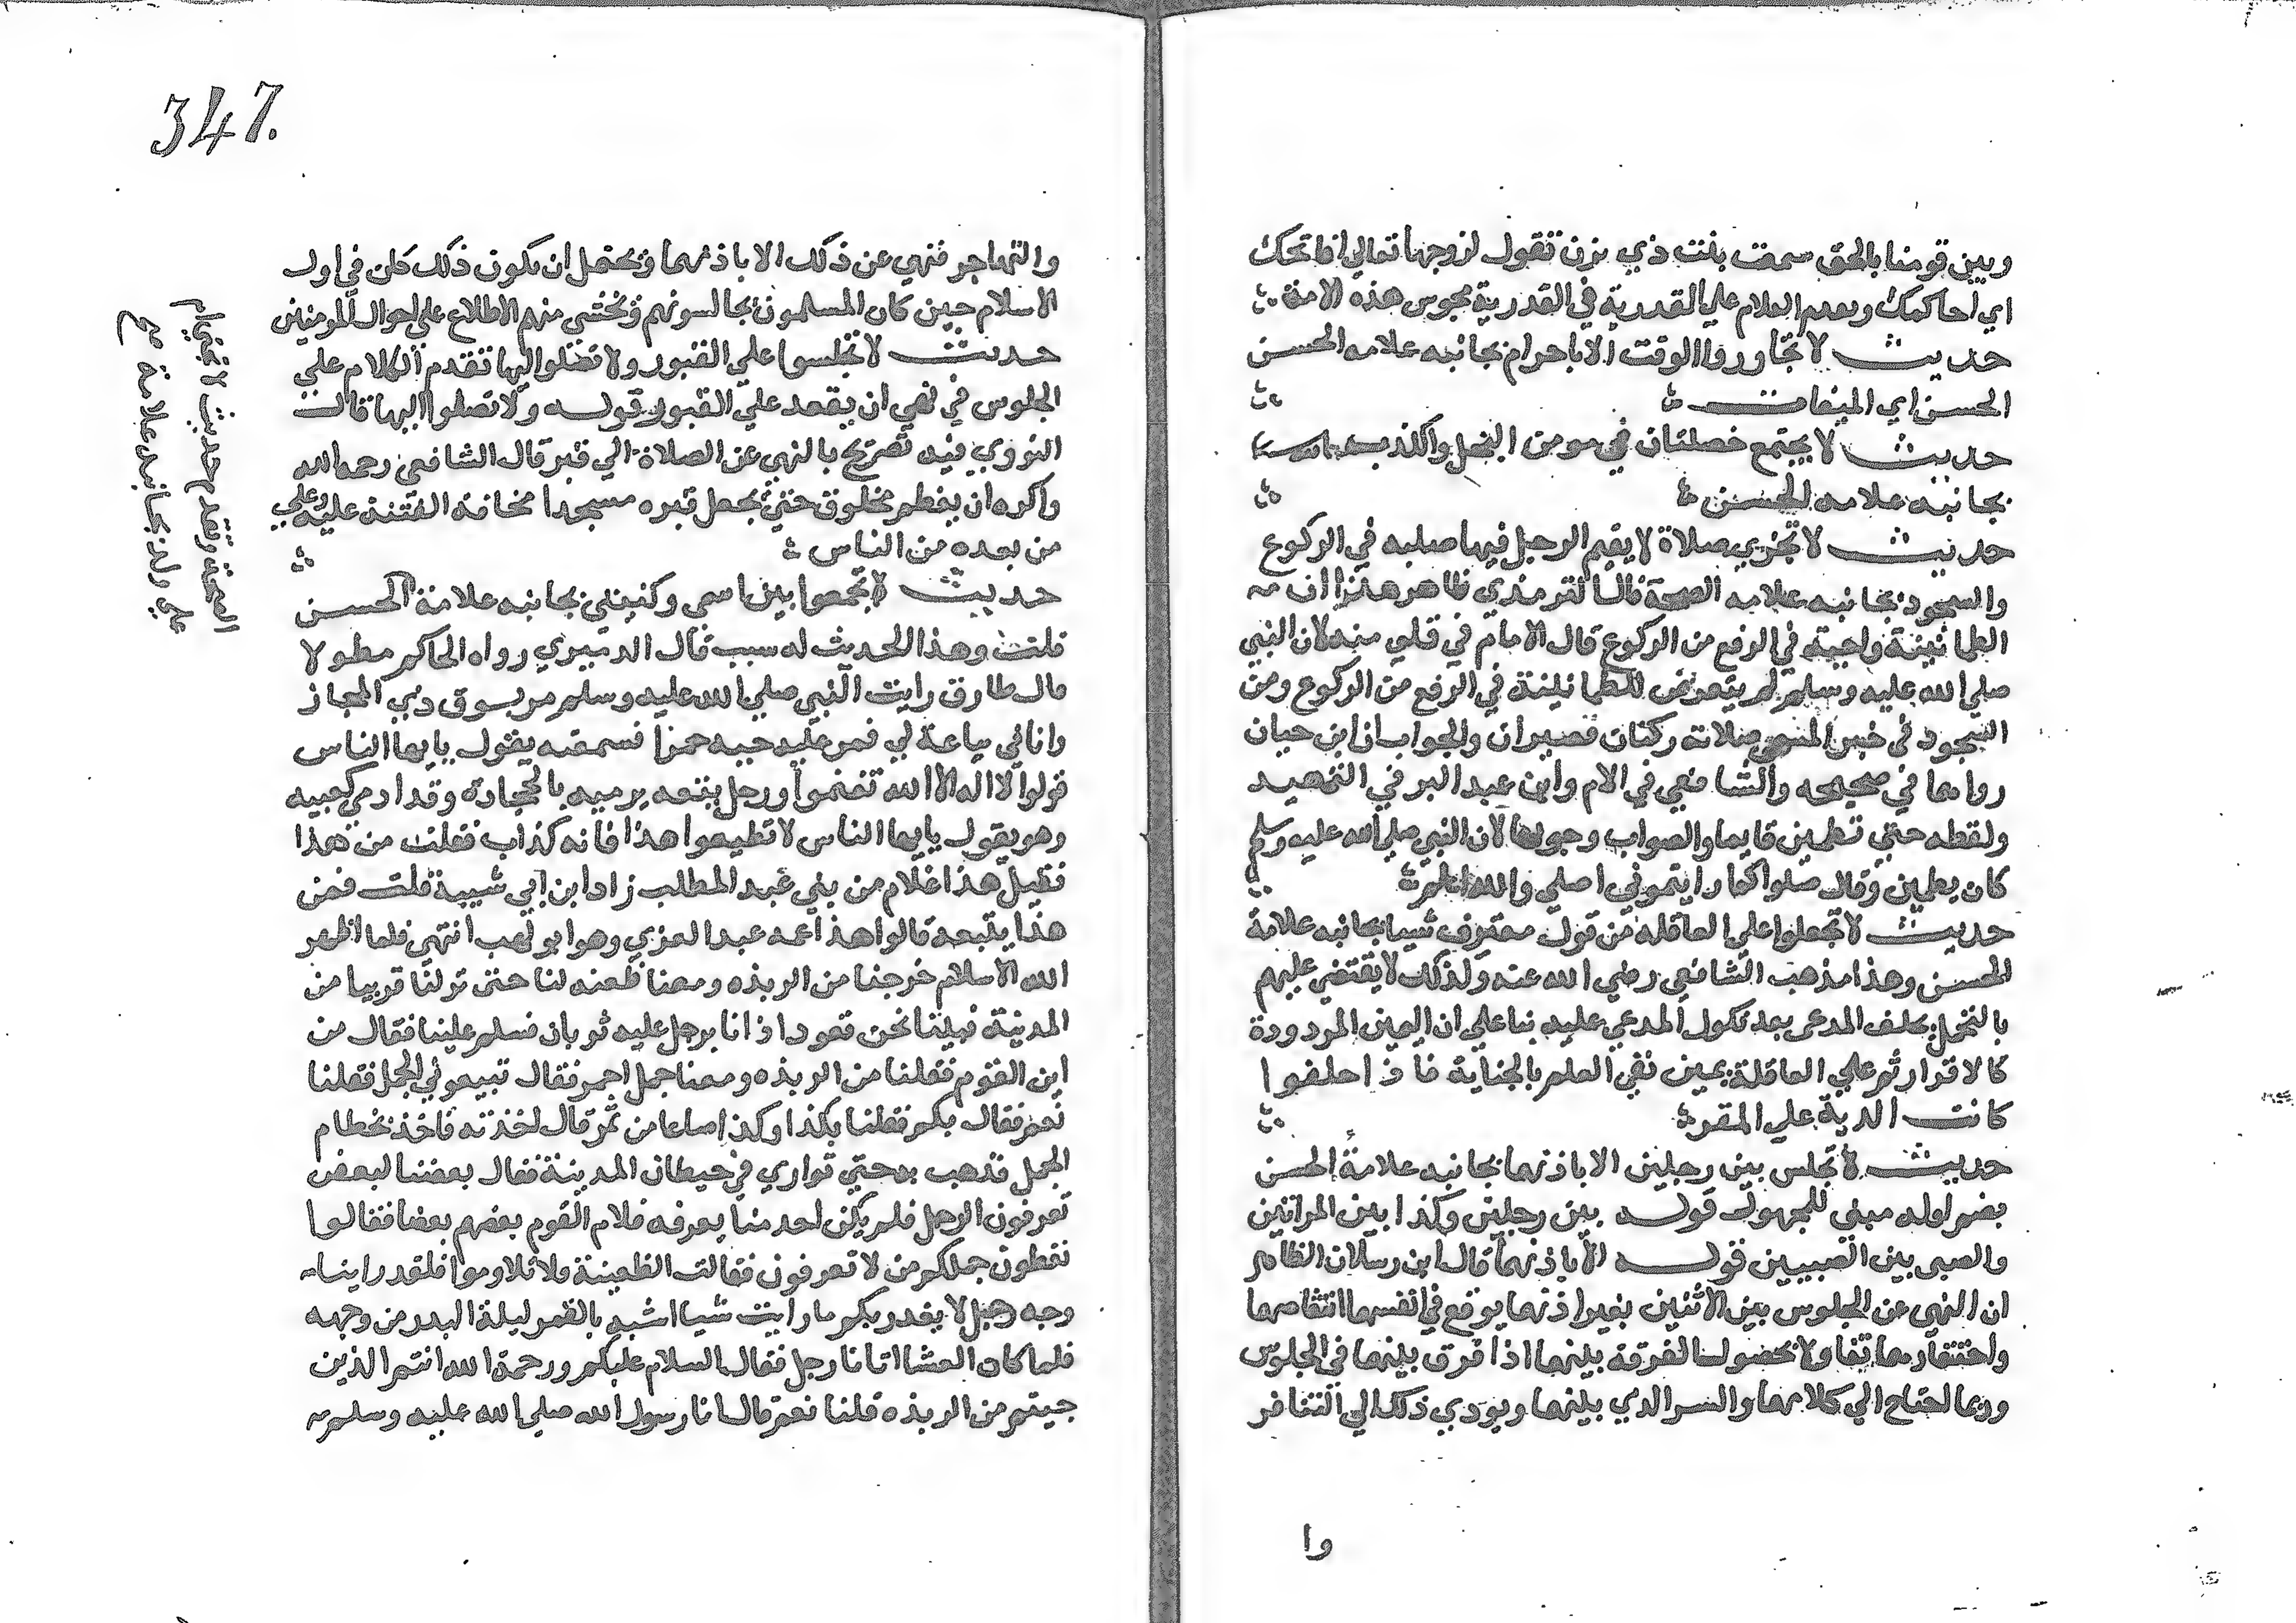 وبين قومنا بالحق سمعت بنت ذي يزن تقول لزوجها تعالي افاتحك
اي احاكمك وتقدم الكلام علي القدرية في القدرية مجوس هذه الامة
حديث لا تجاوروا الوقت الا باحرام بجانبه علامه الحسن
الحسن اي الميقات
حديث لا يجتمع خصلتان في مومن البخل والكذب
بجانبه علامه الحسن
حديث لا تجزي صلاة لا يقيم الرجل فيها صلبه في الركوع
والسجود بجانبه علامه الصحة قال الترمذي ظاهر هذا ان
الطمانينة واجبة في الرفع من الركوع قال الامام في قلبي منه لان النبي
صلي الله عليه وسلم لم يتعرض للطمانينة في الرفع من الركوع ومن
السجود في خبر المسي صلاته ركنان قصيران والجواب ان ابن حبان
رواها في صحيحه والشافعي في الام وابن عبد البر في التمهيد
ولفظه حتي تطمين قايما والصواب وجوبها لان النبي صلي الله عليه وسلم
كان يطمين وقال صلوا كما رايتموني اصلي والله اعلم
حديث لا تجعلوا علي العاقله من قول معترف شيا بجانبه علامة
الحسن وهذا مذهب الشافعي رضي الله عنه ولذلك لا يقتضي عليهم
بالتحمل بحلف المدعي بعد نكول المدعي عليه بنا علي ان اليمين المردودة
كالاقرار ثم علي العاقلة يمين نفي العلم بالجناية فاذا حلفوا
كانت الدية علي المقر
حديث لا تجلس بين رجلين الا باذنهما بجانبه علامة الحسن
بضم اوله مبني للمجهول قوله بين رجلين وكذا بين المراتين
والصبي بين الصبيين قوله الا باذنهما قال ابن رسلان الظاهر
ان النهي عن الجلوس بين الاثنين بغير اذنهما يوقع في انفسهما انتقاصهما
واحتقارهما ولا بحصول الفرقة بينهما اذا فرق بينهما في الجلوس
وربما احتاج الي كلامهما والسر الذي بينهما ويودي ذلك الي التنافر
وا
347.
والتهاجر فنهي عن ذلك الا باذنهما ويحتمل ان يكون ذلك كان في اول
الاسلام حين كان المسلمون يجالسونهم ويخشي منهم الاطلاع علي احوال المومنين
حديث لا تجلسوا علي القبور ولا تصلوا اليها تقدم الكلام علي
الجلوس في نهي ان يقعد علي القبور قوله ولا تصلوا اليها قال
النووي فيه تصريح بالنهي عن الصلاة الي قبر قال الشافعي رحمه الله
واكره ان يعظم مخلوق حتي يجعل قبره مسجدا مخافة الفتنة عليه وعلي
من بعده من الناس
حديث لا تجمعوا بين اسمي وكنيتي بجانبه علامة الحسن
قلت وهذا الحديث له سبب قال الدميري رواه الحاكم مطولا
قال طارق رايت النبي صلي الله عليه وسلم مر بسوق ذي المجاز
وانا في بياعة لي فمر عليه جبه حمرا فسمعته يقول يا يها الناس
قولوا لا اله الا الله تغنموا ورجل يتبعه يرميه بالحجارة وقد ادمي كعبيه
وهو يقول يا يها الناس لا تطيعوا هذا فانه كذاب فقلت من هذا
فقيل هذا غلام من بني عبد المطلب زاد ابن ابي شيبة قلت فمن
هذا يتبعه قالوا هذا عمه عبد العزي وهو ابو لهب انتهي فلما اظهر
الله الاسلام خرجنا من الربذه ومعنا ظعنه لنا حتي نزلنا قريبا من
المدينة فبينا نحن قعود اذ انا برجل عليه ثوبان فسلم علينا فقال من
اين القوم فقلنا من الربذه ومعنا جمل احمر فقال تبيعوني الجمل فقلنا
نعم فقال بكم فقلنا بكذا وكذا صاعا من تمر قال اخذته فاخذ بخطام
الجمل فذهب به حتي تواري في حيطان المدينة فقال بعضنا لبعض
تعرفون الرجل فلم يكن احد منا يعرفه فلام القوم بعضهم بعضا فقالوا
تعطون جملكم من لا تعرفون فقالت الظعينة فلا تلاوموا فلقد راينا
وجه رجل لا يغدر بكم ما رايت شيا اشبه بالقمر ليلة البدر من وجهه
فلما كان العشا اتانا رجل فقال السلام عليكم ورحمة الله انتم الذين
جيتم من الربذه قلنا نعم قال انا رسول رسول الله صلي الله عليه وسلم